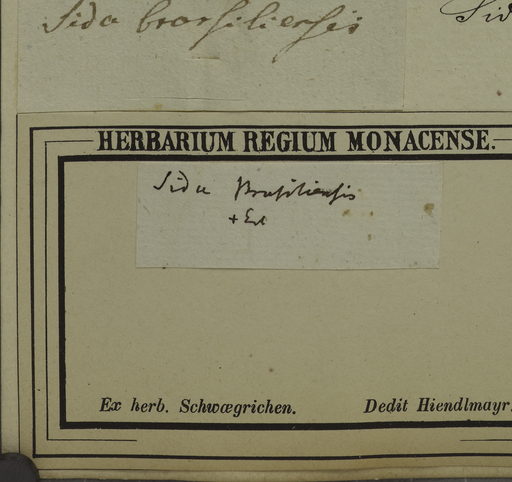 Sida brasiliensis
Sid
HERBARIUM REGIUM MONACENSE.
Sida Brasiliensis
Ex herb. Schwægrichen.
Dedit Hiendlmayr.